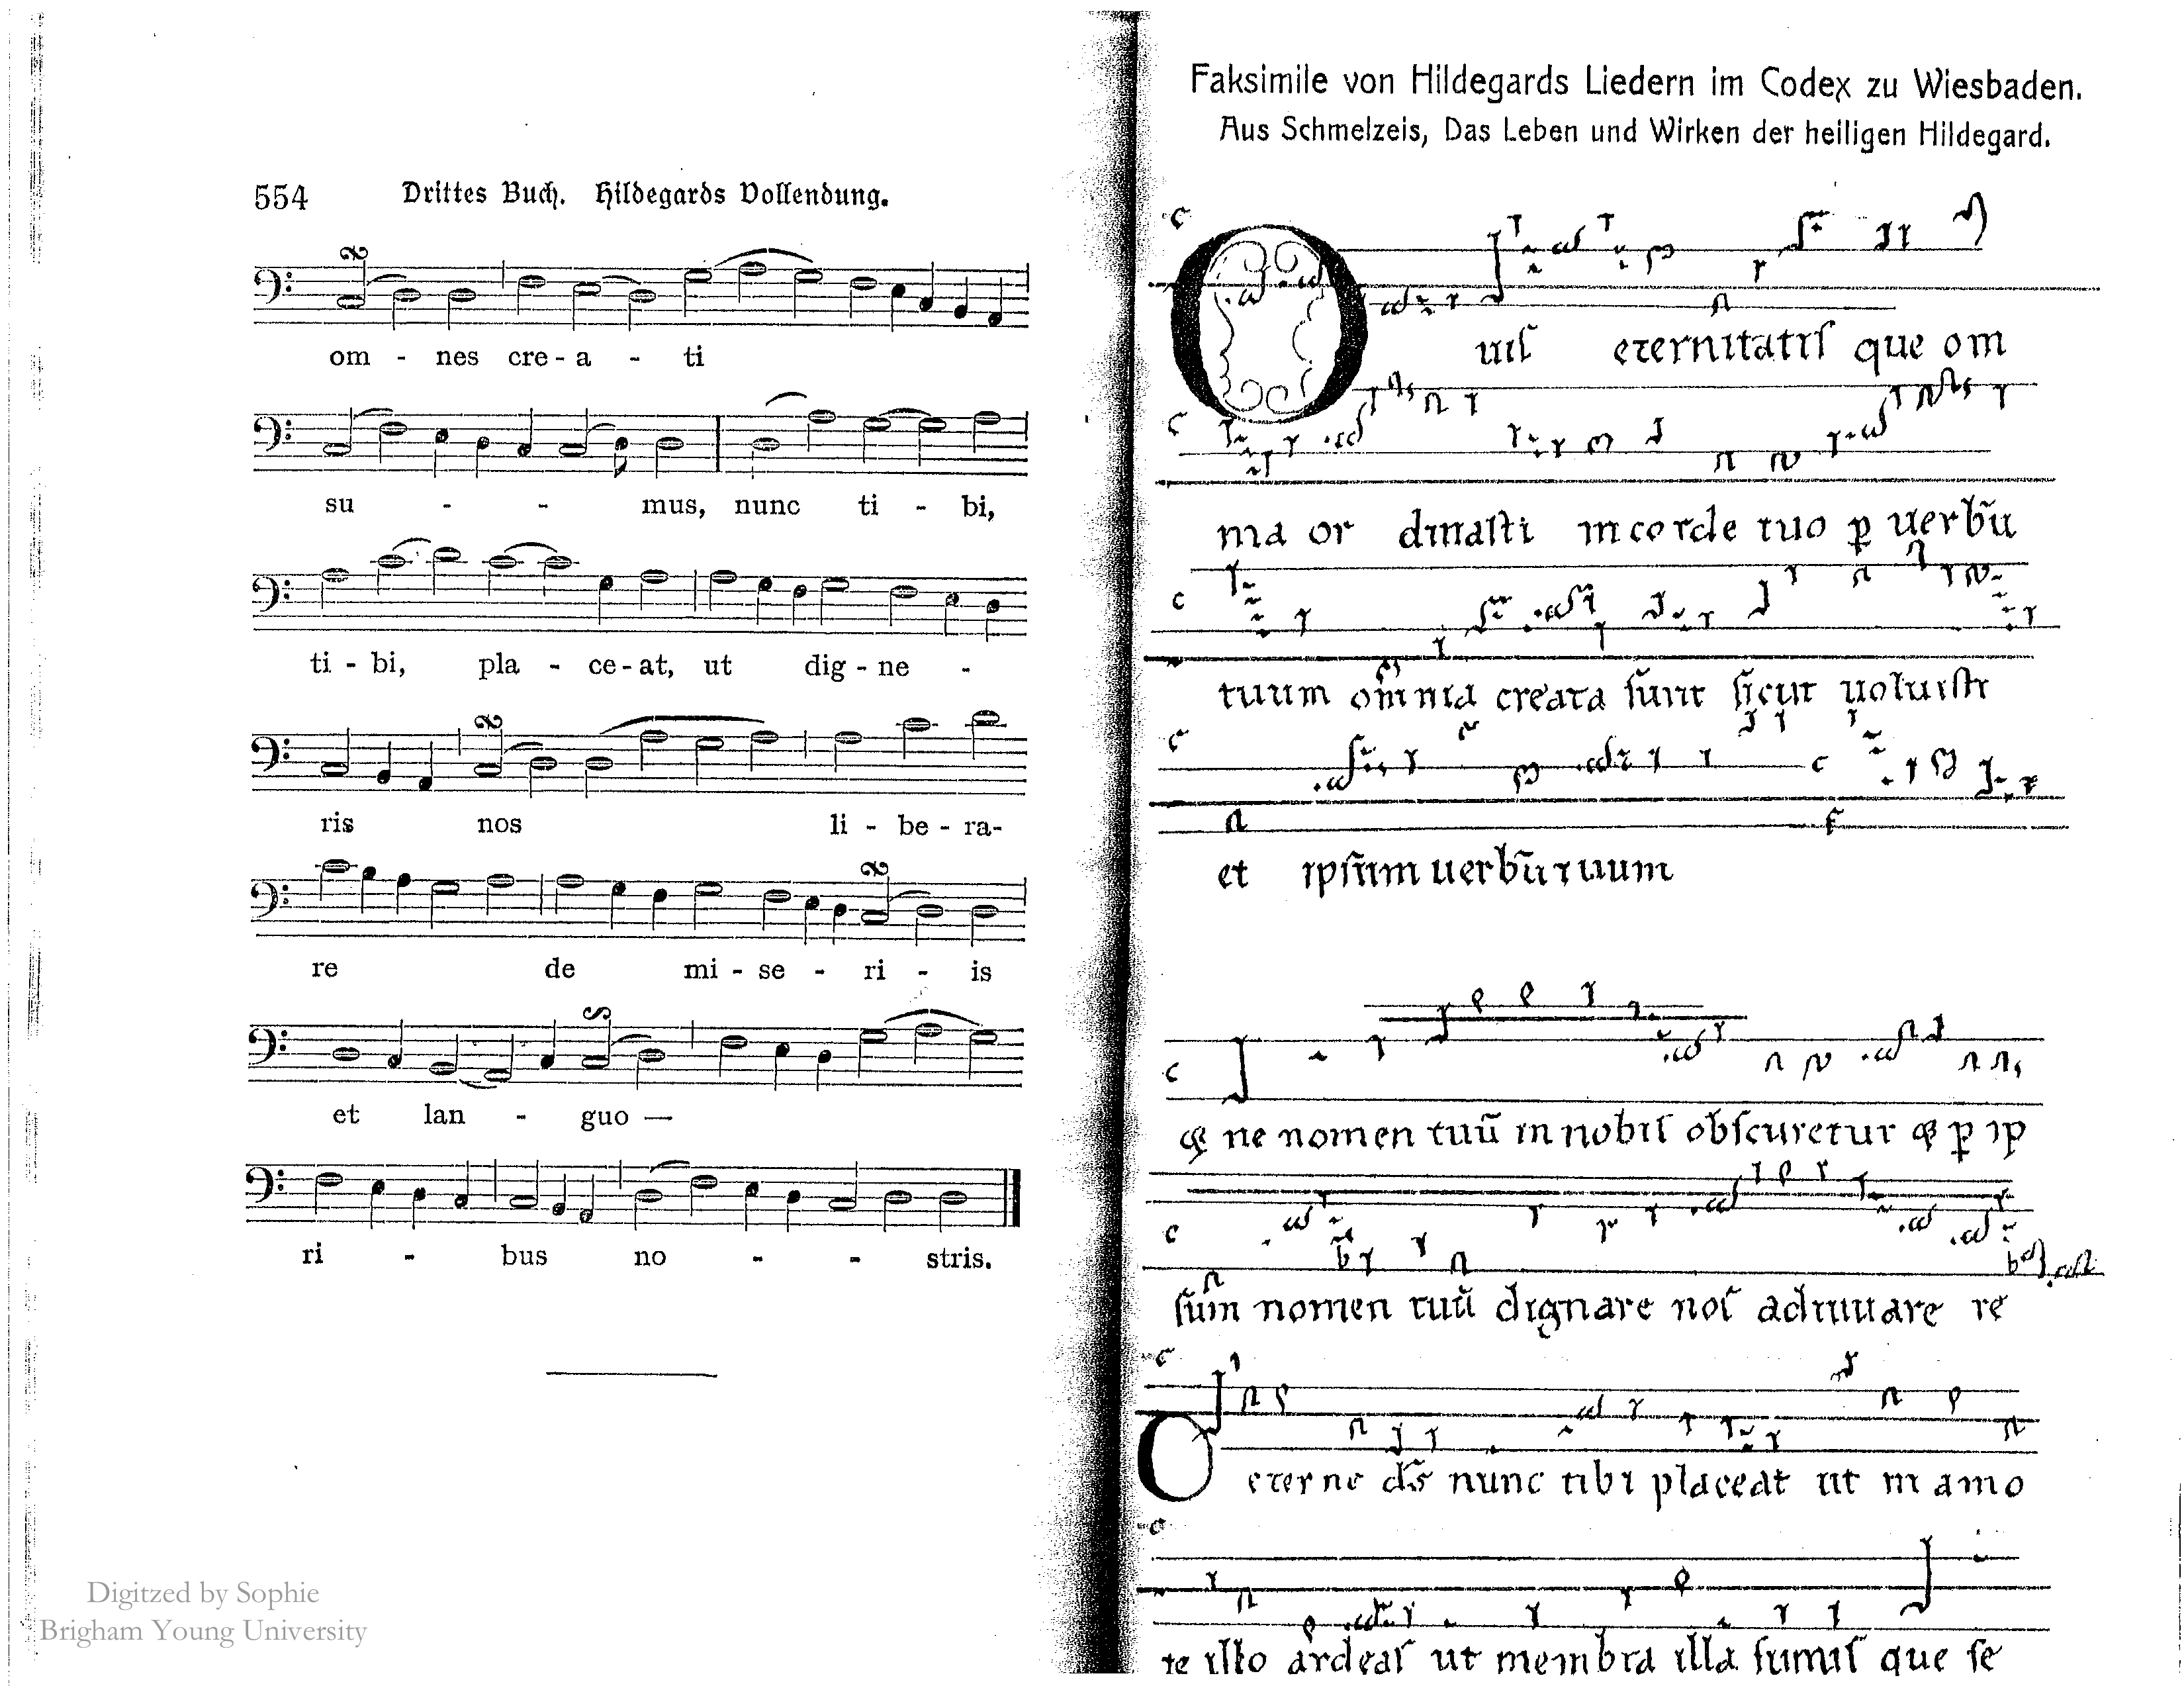 554 Drittes Buch. Hildegards Vollendung.
om - nes cre - a - ti
su - - mus, nunc ti - bi,
ti - bi, pla - ce - at, ut dig - ne -
ris nos li - be - ra-
re de mi - se - ri - is
et lan - guo —
ri - bus no - - stris.
Digitzed by Sophie
Brigham Young University
Faksimile von Hildegards Liedern im Codex zu Wiesbaden.
Aus Schmelzeis, Das Leben und Wirken der heiligen Hildegard.
O uiſ eternitatiſ que om
nia or dinaſti in corde tuo ꝑ uerbū
tuum om̄nia creata ſunt ſicut uoluiſti
et ipſum uerbū tuum
ne nomen tuū in nobiſ obſcuretur ꝑ ip
ſum nomen tuū dignare noſ adiuuare re
O eterne dſ̄ nunc tibi placeat ut in amo
re illo ardeaſ ut membra illa ſimuſ que fe